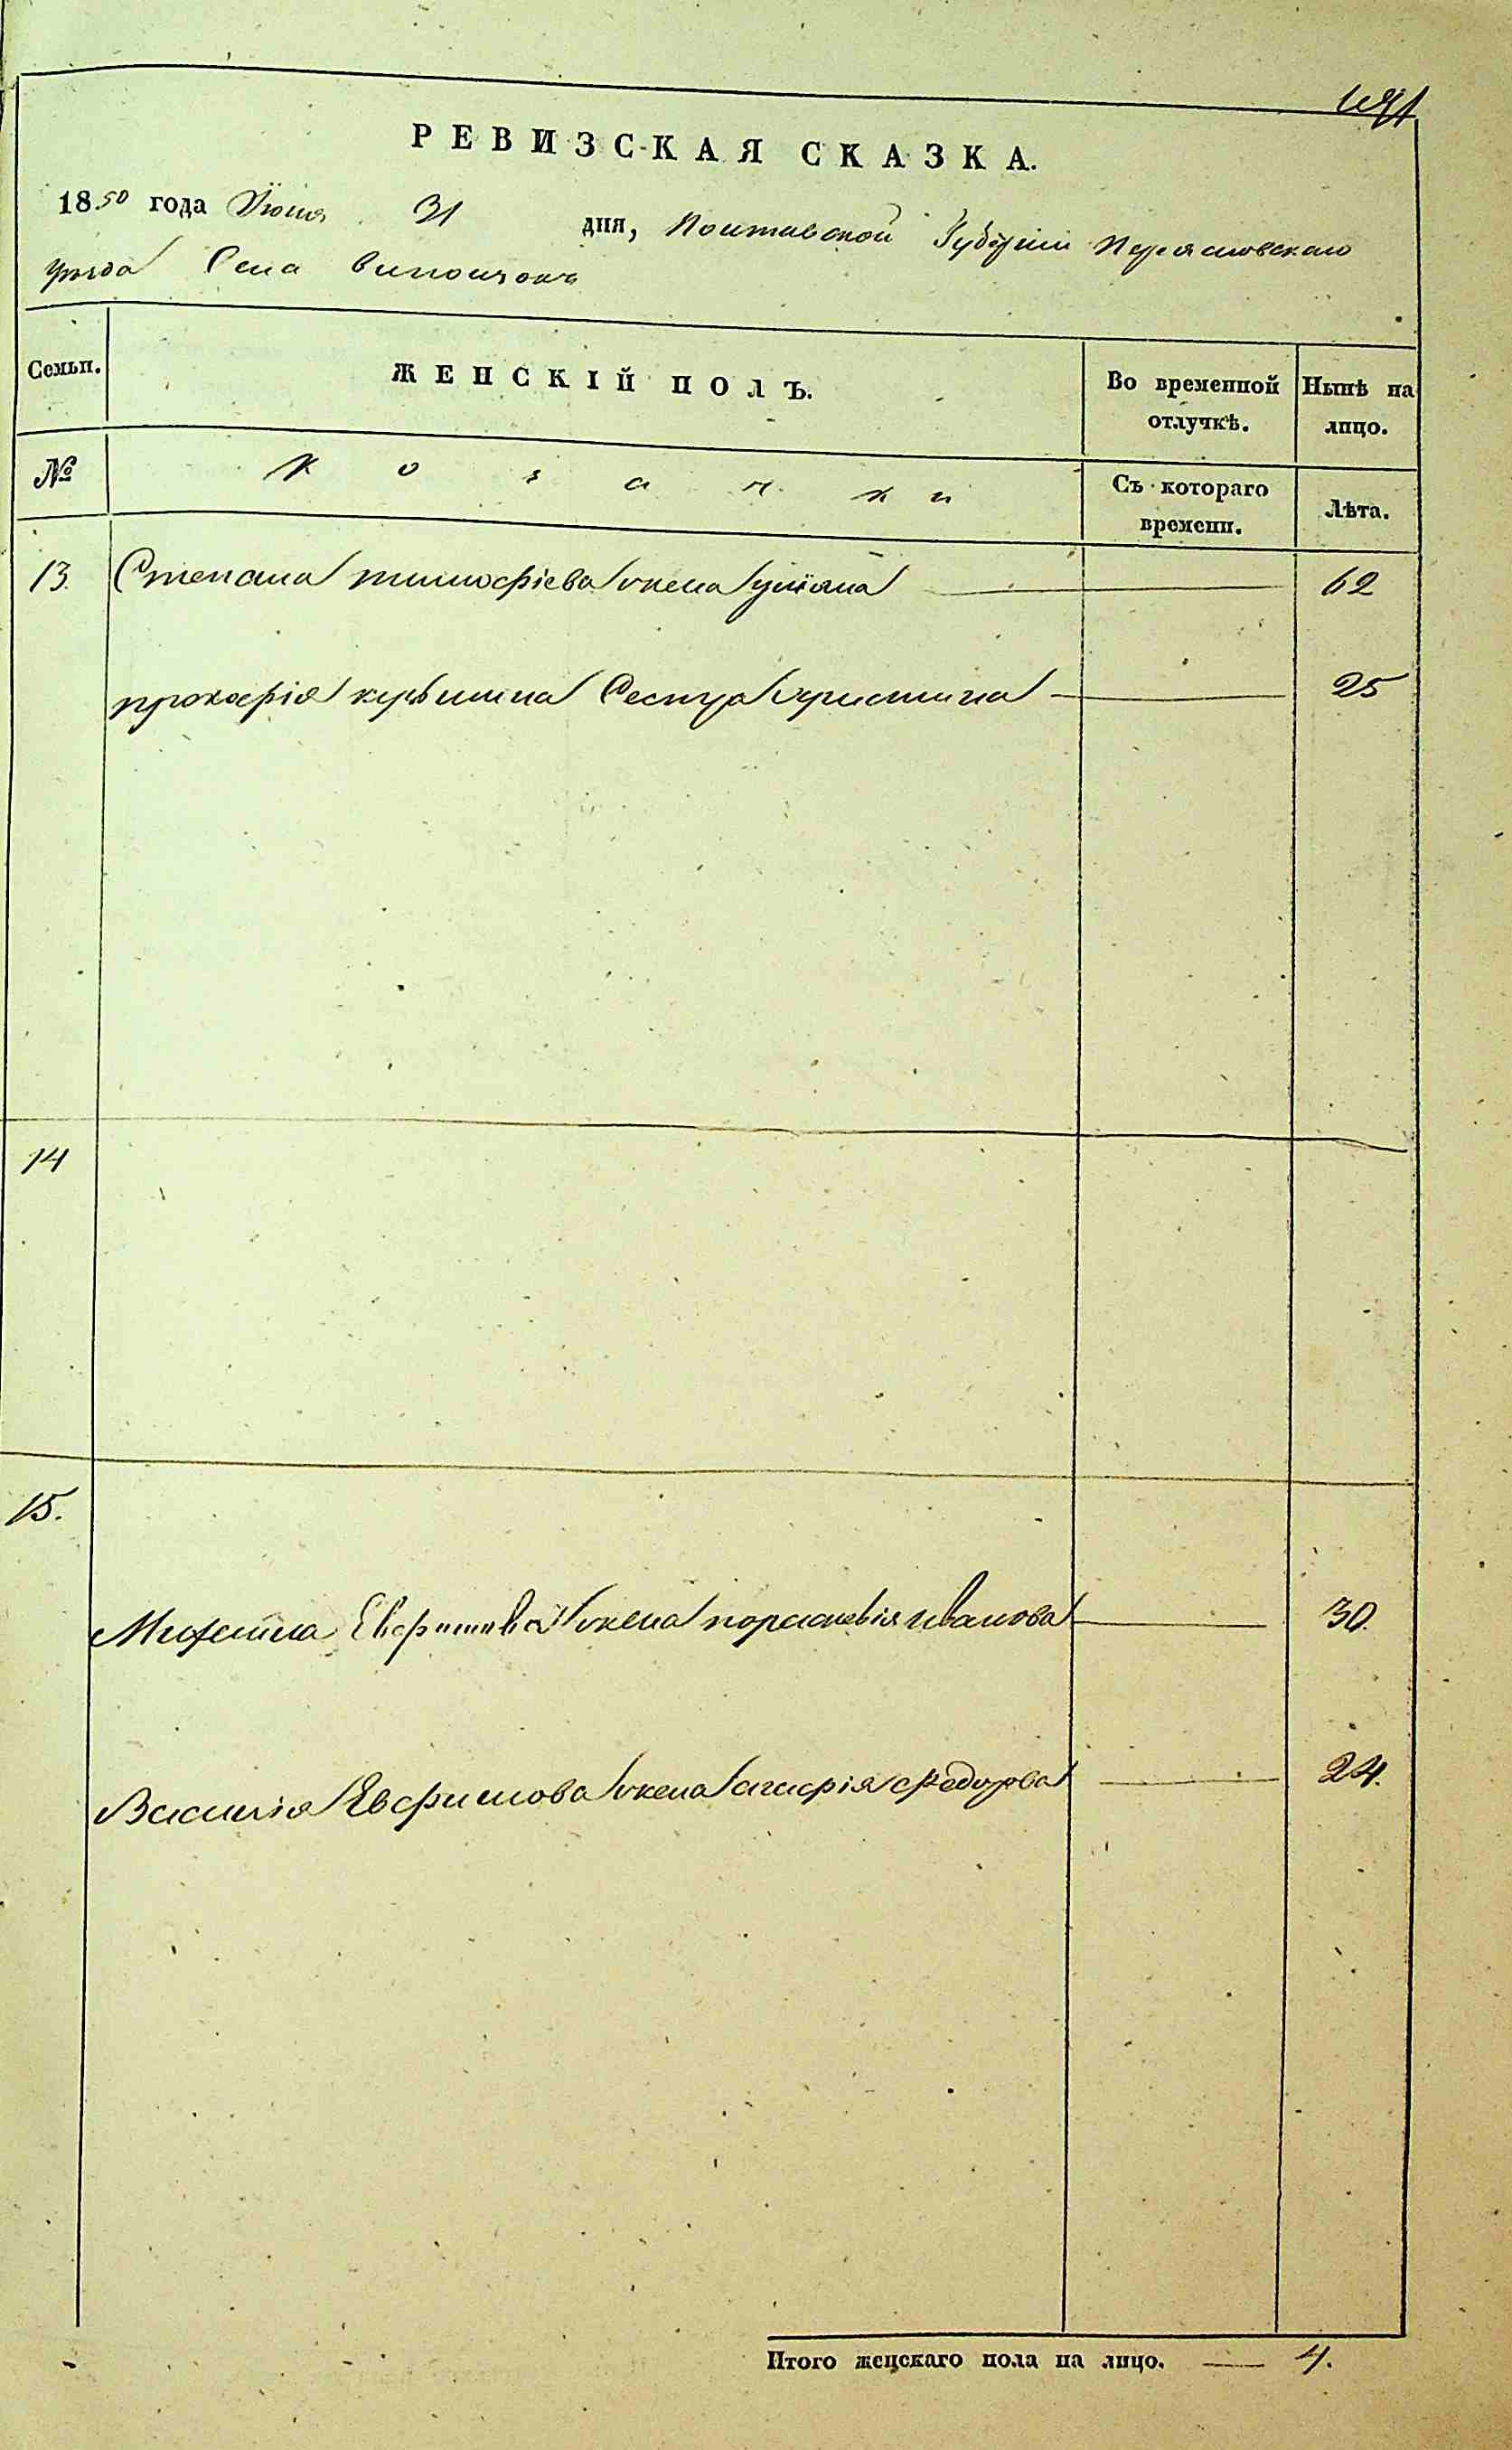 РЕВИЗСКАЯ СКАЗКА.
1850 года Июня 31 дня, Полтавской Губерніи Переяславского
уезда Села
Семьи. ЖЕНСКІЙ ПОЛЪ. Во временной отлучкѣ. Нынѣ на лицо.
№ Козачки Съ котораго времени. Лѣта.
13. Степана тимофіева жена улияна 62
прокофія Сестра христина 25
14
15.
Евфимова жена пораскевія иванова 30.
Василія Евфимова жена агафія федорова 24.
Итого женскаго пола на лицо. 4.